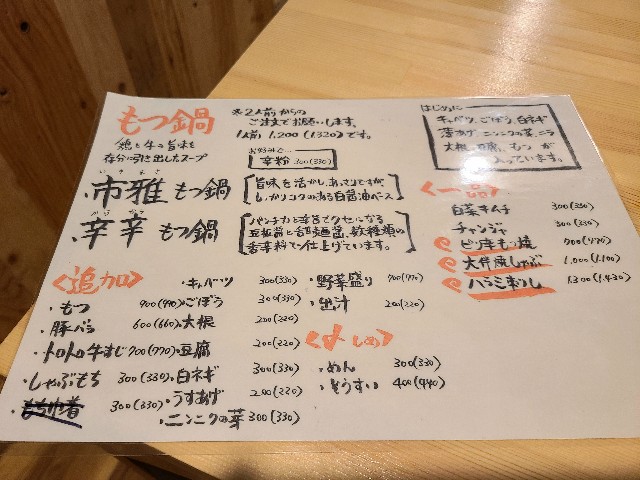 もつ鍋
鶏と牛の旨味を
存分に引き出したスープ
※2人前からの
ご注文でお願いします。
1人前 1,200(1,320)です。
お好みで…
辛粉 300(330)
はじめに
キャベツ、ごぼう、白ネギ
薄あげ、ニンニクの芽、ニラ
大根、豆腐、もつ が
入っています。
いちまさ
・市雅もつ鍋
旨味を活かし、あっさりですが、
しっかりコクのある白醤油ベース
からから
・辛辛もつ鍋
パンチ力と辛さでクセになる
豆板醤と甜麺醤、数種類の
香辛料で仕上げています。
<追加>
・もつ 900(990)
・豚バラ 600(660)
・トロトロ牛すじ 700(770)
・しゃぶもち 300(330)
・もち巾着 300(330)
・キャベツ 300(330)
・ごぼう 300(330)
・大根 200(220)
・豆腐 200(220)
・白ネギ 300(330)
・うすあげ 200(220)
・ニンニクの芽 300(330)
・野菜盛り 700(770)
・出汁 200(220)
<〆しめ>
・めん 300(330)
・ぞうすい 400(440)
<一品>
白菜キムチ 300(330)
チャンジャ 300(330)
ピリ辛もつ焼 700(770)
大判焼しゃぶ 1,000(1,100)
ハラミ刺し 1,300(1,430)